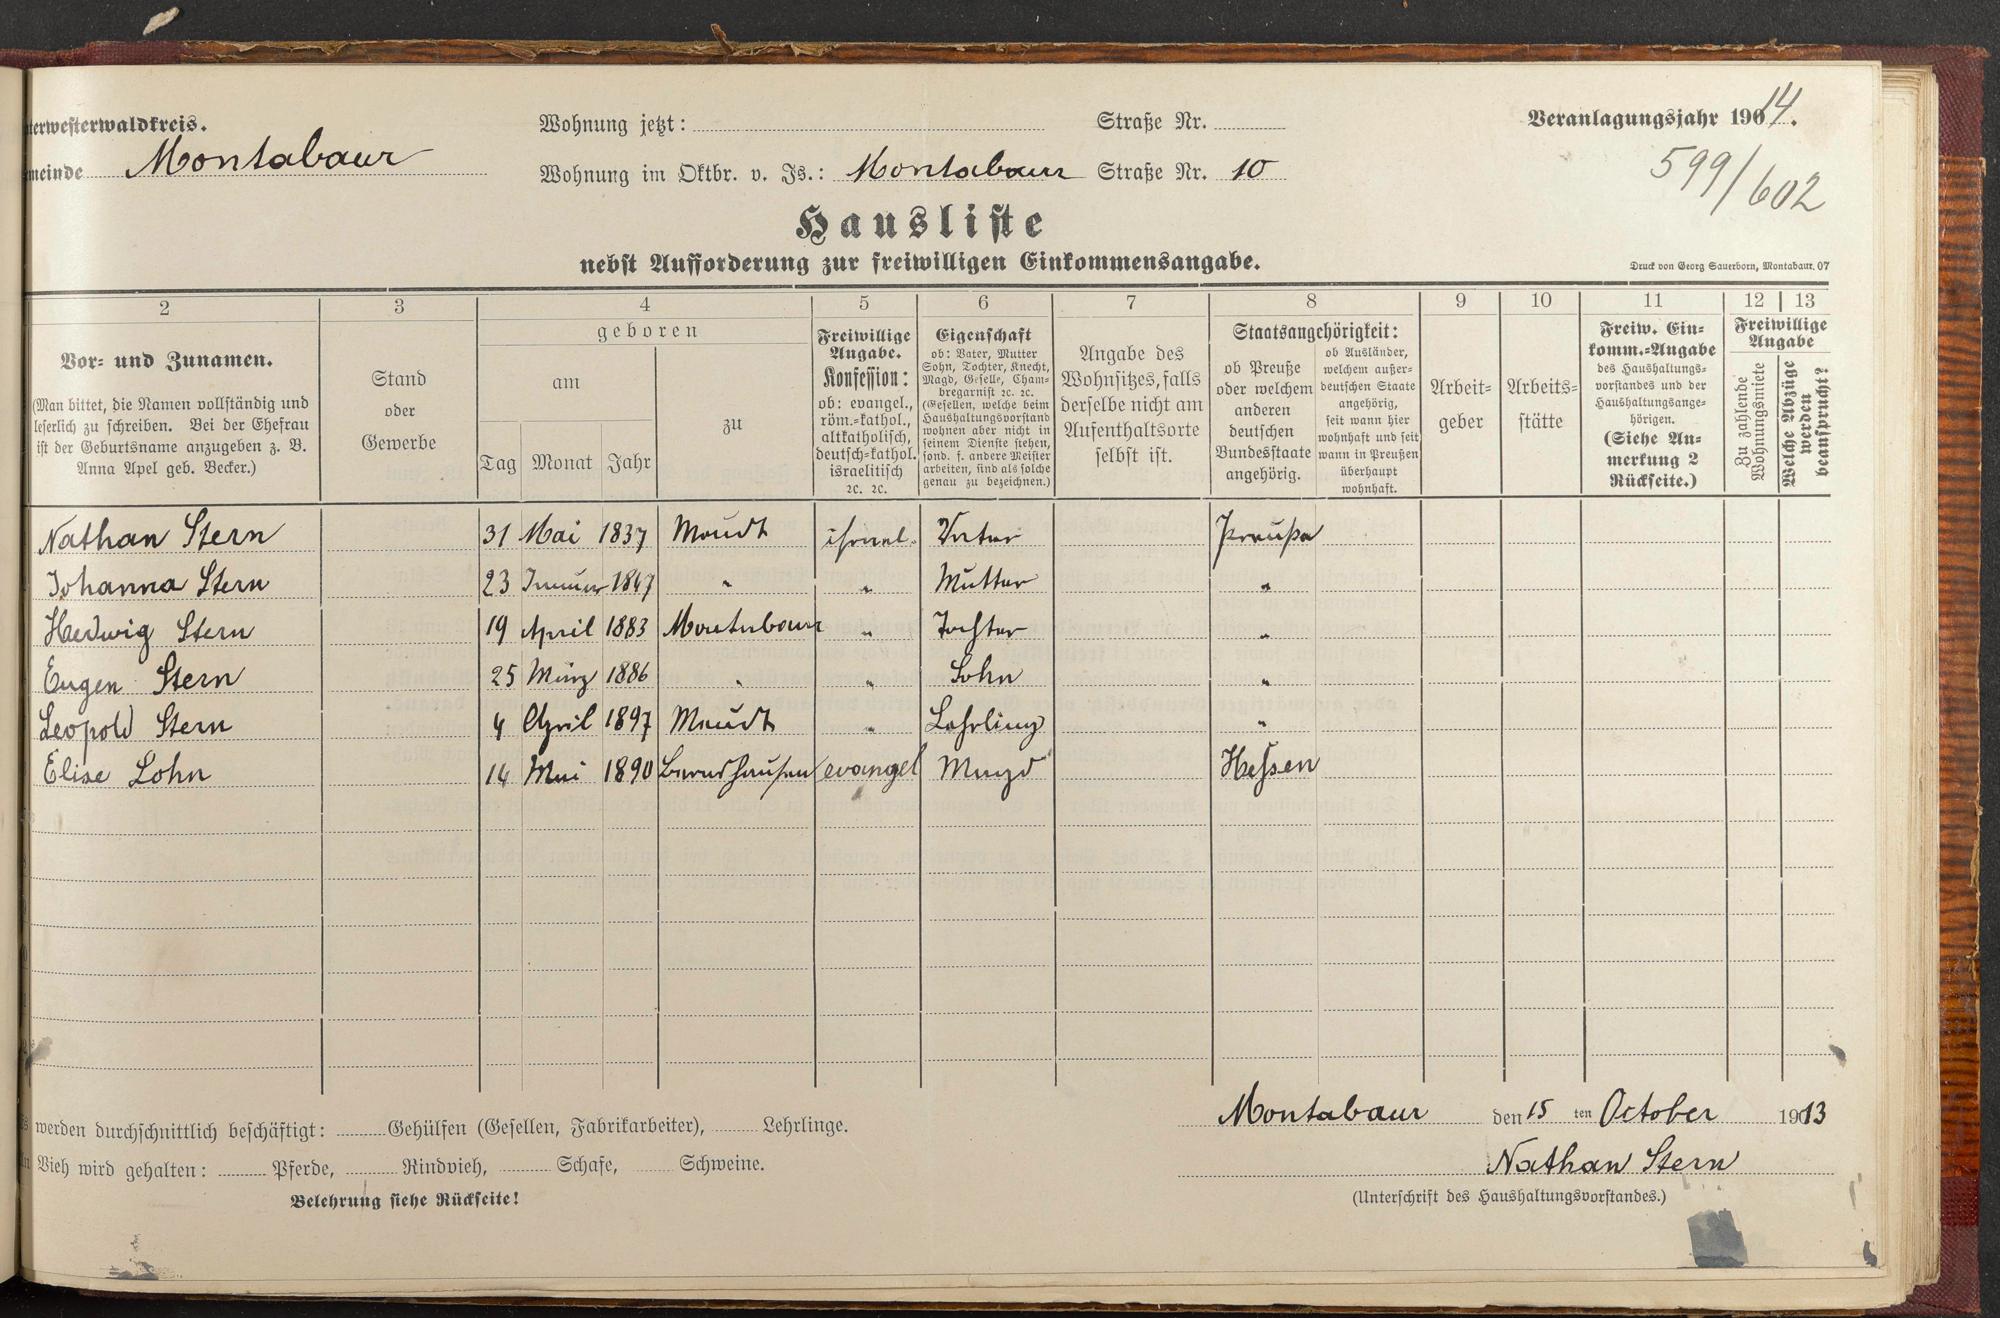 terwesterwaldkreis.
meinde Montabaur
Wohnung jetzt: Straße Nr.
Wohnung im Oktbr. v. Js.: Montabaur Straße Nr. 10
Veranlagungsjahr 1914.
599/602
Hausliste
nebst Aufforderung zur freiwilligen Einkommensangabe.
Druck von Georg Sauerborn, Montabaur. 07
2 3 4 5 6 7 8 9 10 11 12 13
Vor- und Zunamen.
(Man bittet, die Namen vollständig und
leserlich zu schreiben. Bei der Ehefrau
ist der Geburtsname anzugeben z. B.
Anna Apel geb. Becker.)
Stand
oder
Gewerbe
geboren
am
Tag Monat Jahr
zu
Freiwillige
Angabe.
Konfession:
ob: evangel.,
röm.-kathol.,
altkatholisch,
deutsch-kathol.
israelitisch
2c. 2c.
Eigenschaft
ob: Vater, Mutter
Sohn, Tochter, Knecht,
Magd, Geselle, Cham-
bregarnist 2c. 2c.
(Gesellen, welche beim
Haushaltungsvorstand
wohnen aber nicht in
seinem Dienste stehen,
sond. f. andere Meister
arbeiten, sind als solche
genau zu bezeichnen.)
Angabe des
Wohnsitzes, falls
derselbe nicht am
Aufenthaltsorte
selbst ist.
Staatsangehörigkeit:
ob Preuße
oder welchem
anderen
deutschen
Bundesstaate
angehörig.
ob Ausländer,
welchem außer-
deutschen Staate
angehörig,
seit wann hier
wohnhaft und seit
wann in Preußen
überhaupt
wohnhaft.
Arbeit-
geber
Arbeits-
stätte
Freiw. Ein-
komm.-Angabe
des Haushaltungs-
vorstandes und der
Haushaltungsange-
hörigen.
(Siehe An-
merkung 2
Rückseite.)
Freiwillige
Angabe
Zu zahlende
Wohnungsmiete
Welche Abzüge
werden
beansprucht?
Nathan Stern 31 Mai 1837 Meudt israel. Vater Preuße
Johanna Stern 23 Januar 1847 " " Mutter "
Hedwig Stern 19 April 1883 Montabaur " Tochter "
Eugen Stern 25 März 1886 " " Sohn "
Leopold Stern 4 April 1897 Meudt " Lehrling "
Elise Lohn 14 Mai 1890 evangel Magd Hessen
werden durchschnittlich beschäftigt: Gehülfen (Gesellen, Fabrikarbeiter), Lehrlinge.
Vieh wird gehalten: Pferde, Rindvieh, Schafe, Schweine.
Belehrung siehe Rückseite!
Montabaur den 15 ten October 1913
Nathan Stern
(Unterschrift des Haushaltungsvorstandes.)